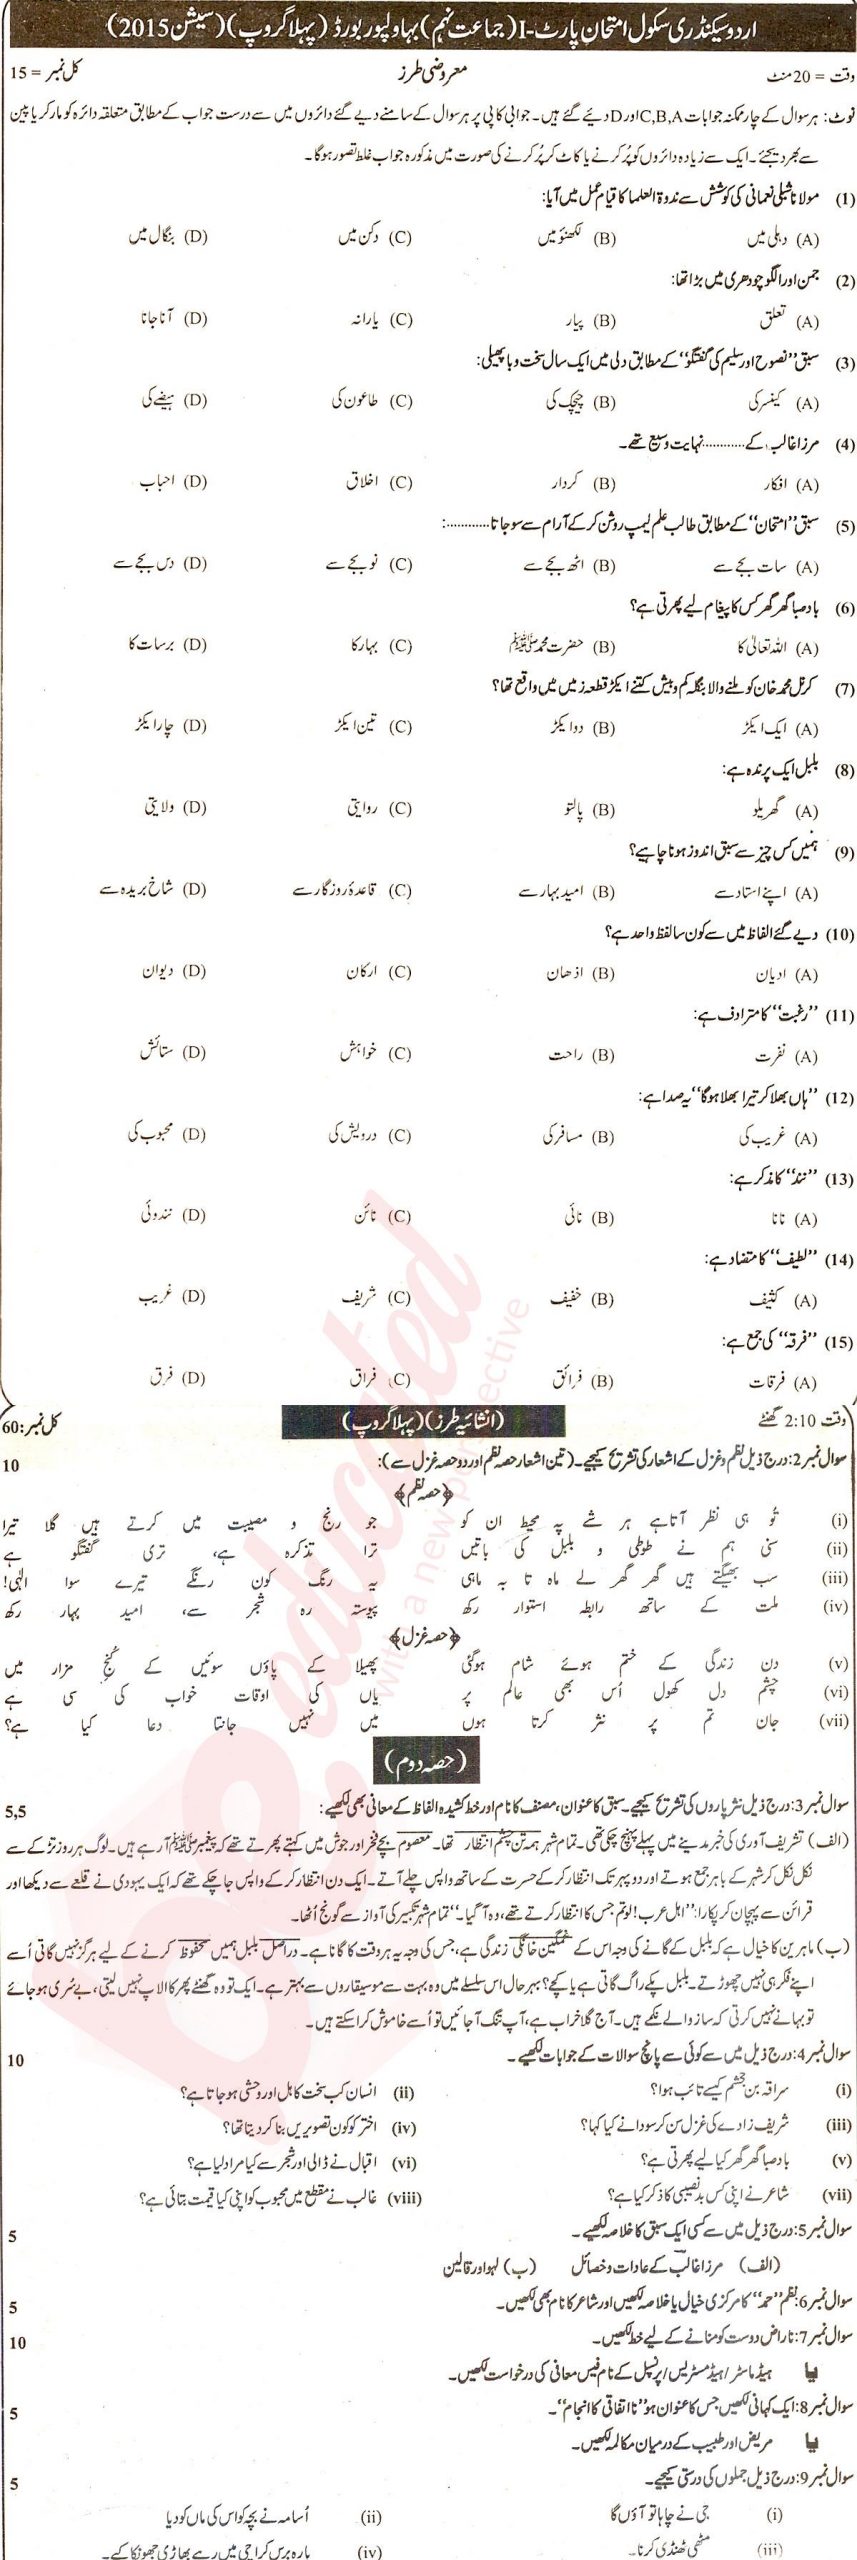 اردو سیکنڈری سکول امتحان پارٹ-I (جماعت نہم) بہاولپور بورڈ (پہلا گروپ) (سیشن 2015)
وقت = 20 منٹ معروضی طرز کل نمبر = 15
نوٹ: ہر سوال کے چار ممکنہ جوابات C,B,A اور D دیئے گئے ہیں۔ جوابی کاپی پر ہر سوال کے سامنے دیے گئے دائروں میں سے درست جواب کے مطابق متعلقہ دائرہ کو مارکر یا پین
سے بھر دیجئے۔ ایک سے زیادہ دائروں کو پُر کرنے یا کاٹ کر پُر کرنے کی صورت میں مذکورہ جواب غلط تصور ہوگا۔
(1) مولانا شبلی نعمانی کی کوشش سے ندوۃ العلما کا قیام عمل میں آیا:
(A) دہلی میں (B) لکھنؤ میں (C) دکن میں (D) بنگال میں
(2) جمن اور الگو چودھری میں بڑا تھا:
(A) تعلق (B) پیار (C) یارانہ (D) آنا جانا
(3) سبق "نصوح اور سلیم کی گفتگو" کے مطابق دلی میں ایک سال سخت وبا پھیلی:
(A) کینسر کی (B) چیچک کی (C) طاعون کی (D) ہیضے کی
(4) مرزا غالب کے............ نہایت وسیع تھے۔
(A) افکار (B) کردار (C) اخلاق (D) احباب
(5) سبق "امتحان" کے مطابق طالب علم لیمپ روشن کر کے آرام سے سو جاتا............:
(A) سات بجے سے (B) اٹھ بجے سے (C) نو بجے سے (D) دس بجے سے
(6) باد صبا گھر گھر کس کا پیغام لیے پھرتی ہے؟
(A) اللہ تعالیٰ کا (B) حضرت محمد ﷺ (C) بہار کا (D) برسات کا
(7) کرنل محمد خان کو ملنے والا بنگلہ کم و بیش کتنے ایکڑ قطعہ زمیں میں واقع تھا؟
(A) ایک ایکڑ (B) دو ایکڑ (C) تین ایکڑ (D) چار ایکڑ
(8) بلبل ایک پرندہ ہے:
(A) گھریلو (B) پالتو (C) روایتی (D) ولایتی
(9) ہمیں کس چیز سے سبق اندوز ہونا چاہیے؟
(A) اپنے استاد سے (B) امید بہار سے (C) قاعدۂ روزگار سے (D) شاخ بریدہ سے
(10) دیے گئے الفاظ میں سے کون سا لفظ واحد ہے؟
(A) ادیان (B) اذھان (C) ارکان (D) دیوان
(11) "رغبت" کا مترادف ہے:
(A) نفرت (B) راحت (C) خواہش (D) ستائش
(12) "ہاں بھلا کر تیرا بھلا ہوگا" یہ صدا ہے:
(A) غریب کی (B) مسافر کی (C) درویش کی (D) محبوب کی
(13) "نند" کا مذکر ہے:
(A) نانا (B) نائی (C) نائن (D) نندوئی
(14) "لطیف" کا متضاد ہے:
(A) کثیف (B) خفیف (C) شریف (D) غریب
(15) "فرقہ" کی جمع ہے:
(A) فرقات (B) فرائق (C) فراق (D) فرق
وقت 2:10 گھنٹے (انشائیہ طرز) (پہلا گروپ) کل نمبر: 60
سوال نمبر 2: درج ذیل نظم و غزل کے اشعار کی تشریح کیجیے۔ (تین اشعار حصہ نظم اور دو حصہ غزل سے): 10
﴿حصہ نظم﴾
(i) تُو ہی نظر آتا ہے ہر شے پہ محیط ان کو جو رنج و مصیبت میں کرتے ہیں گلا تیرا
(ii) سنی ہم نے طوطی و بلبل کی باتیں ترا تذکرہ ہے، تری گفتگو ہے
(iii) سب بھیگتے ہیں گھر گھر لے ماہ تا بہ ماہی یہ رنگ کون رنگے تیرے سوا الٰہی!
(iv) ملت کے ساتھ رابطہ استوار رکھ پیوستہ رہ شجر سے، امید بہار رکھ
﴿حصہ غزل﴾
(v) دن زندگی کے ختم ہوئے شام ہوگئی پھیلا کے پاؤں سوئیں گے کُنجِ مزار میں
(vi) چشم دل کھول اُس بھی عالم پر یاں کی اوقات خواب کی سی ہے
(vii) جان تم پر نثر کرتا ہوں میں نہیں جانتا دعا کیا ہے؟
(حصہ دوم)
سوال نمبر 3: درج ذیل نثر پاروں کی تشریح کیجیے۔ سبق کا عنوان، مصنف کا نام اور خط کشیدہ الفاظ کے معانی بھی لکھیے: 5,5
(الف) تشریف آوری کی خبر مدینے میں پہلے پہنچ چکی تھی۔ تمام شہر ہمہ تن چشم انتظار تھا۔ معصوم بچے فخر اور جوش میں کہتے پھرتے تھے کہ پیغمبر ﷺ آ رہے ہیں۔ لوگ ہر روز تڑکے سے
نکل نکل کر شہر کے باہر جمع ہوتے اور دوپہر تک انتظار کر کے حسرت کے ساتھ واپس چلے آتے۔ ایک دن انتظار کر کے واپس جا چکے تھے کہ ایک یہودی نے قلعے سے دیکھا اور
قرائن سے پہچان کر پکارا: "اہل عرب! لو تم جس کا انتظار کرتے تھے، وہ آ گیا۔" تمام شہر تکبیر کی آواز سے گونج اُٹھا۔
(ب) ماہرین کا خیال ہے کہ بلبل کے گانے کی وجہ اس کے غمگین خانگی زندگی ہے، جس کی وجہ یہ ہر وقت کا گانا ہے۔ دراصل بلبل ہمیں محفوظ کرنے کے لیے ہرگز نہیں گاتی اُسے
اپنے فکر ہی نہیں چھوڑتے۔ بلبل پکے راگ گاتی ہے یا کچے؟ بہرحال اس سلسلے میں وہ بہت سے موسیقاروں سے بہتر ہے۔ ایک تو وہ گھنٹے بھر کا الاپ نہیں لیتی، بے سُری ہو جائے
تو بہانے نہیں کرتی کہ ساز والے نکمے ہیں۔ آج گلا خراب ہے، آپ تنگ آ جائیں تو اُسے خاموش کرا سکتے ہیں۔
سوال نمبر 4: درج ذیل میں سے کوئی سے پانچ سوالات کے جوابات لکھیے۔ 10
(i) سراقہ بن جشم کیسے تائب ہوا؟ (ii) انسان کب سخت کاہل اور وحشی ہو جاتا ہے؟
(iii) شریف زادے کی غزل سن کر سودا نے کیا کہا؟ (iv) اختر کو کون تصویریں بنا کر دیتا تھا؟
(v) باد صبا گھر گھر کیا لیے پھرتی ہے؟ (vi) اقبال نے ڈالی اور شجر سے کیا مراد لیا ہے؟
(vii) شاعر نے اپنی کس بدنصیبی کا ذکر کیا ہے؟ (viii) غالب نے مقطع میں محبوب کو اپنی کیا قیمت بتائی ہے؟
سوال نمبر 5: درج ذیل میں سے کسی ایک سبق کا خلاصہ لکھیے۔ 5
(الف) مرزا غالب کے عادات و خصائل (ب) لہو اور قالین
سوال نمبر 6: نظم "حمد" کا مرکزی خیال یا خلاصہ لکھیں اور شاعر کا نام بھی لکھیں۔ 5
سوال نمبر 7: ناراض دوست کو منانے کے لیے خط لکھیں۔ 10
یا ہیڈ ماسٹر/ہیڈ مسٹریس/پرنسپل کے نام فیس معافی کی درخواست لکھیں۔
سوال نمبر 8: ایک کہانی لکھیں جس کا عنوان ہو "نااتفاقی کا انجام"۔ 5
یا مریض اور طبیب کے درمیان مکالمہ لکھیں۔
سوال نمبر 9: درج ذیل جملوں کی درستی کیجیے۔ 5
(i) جی نے چاہا تو آؤں گا (ii) اُسامہ نے بچہ کو اس کی ماں کو دیا
(iii) مٹھی ٹھنڈی کرنا۔ (iv) بارہ برس کراچی میں رہے بھاڑ ہی جھونکا کے۔
educated
with a new perspective